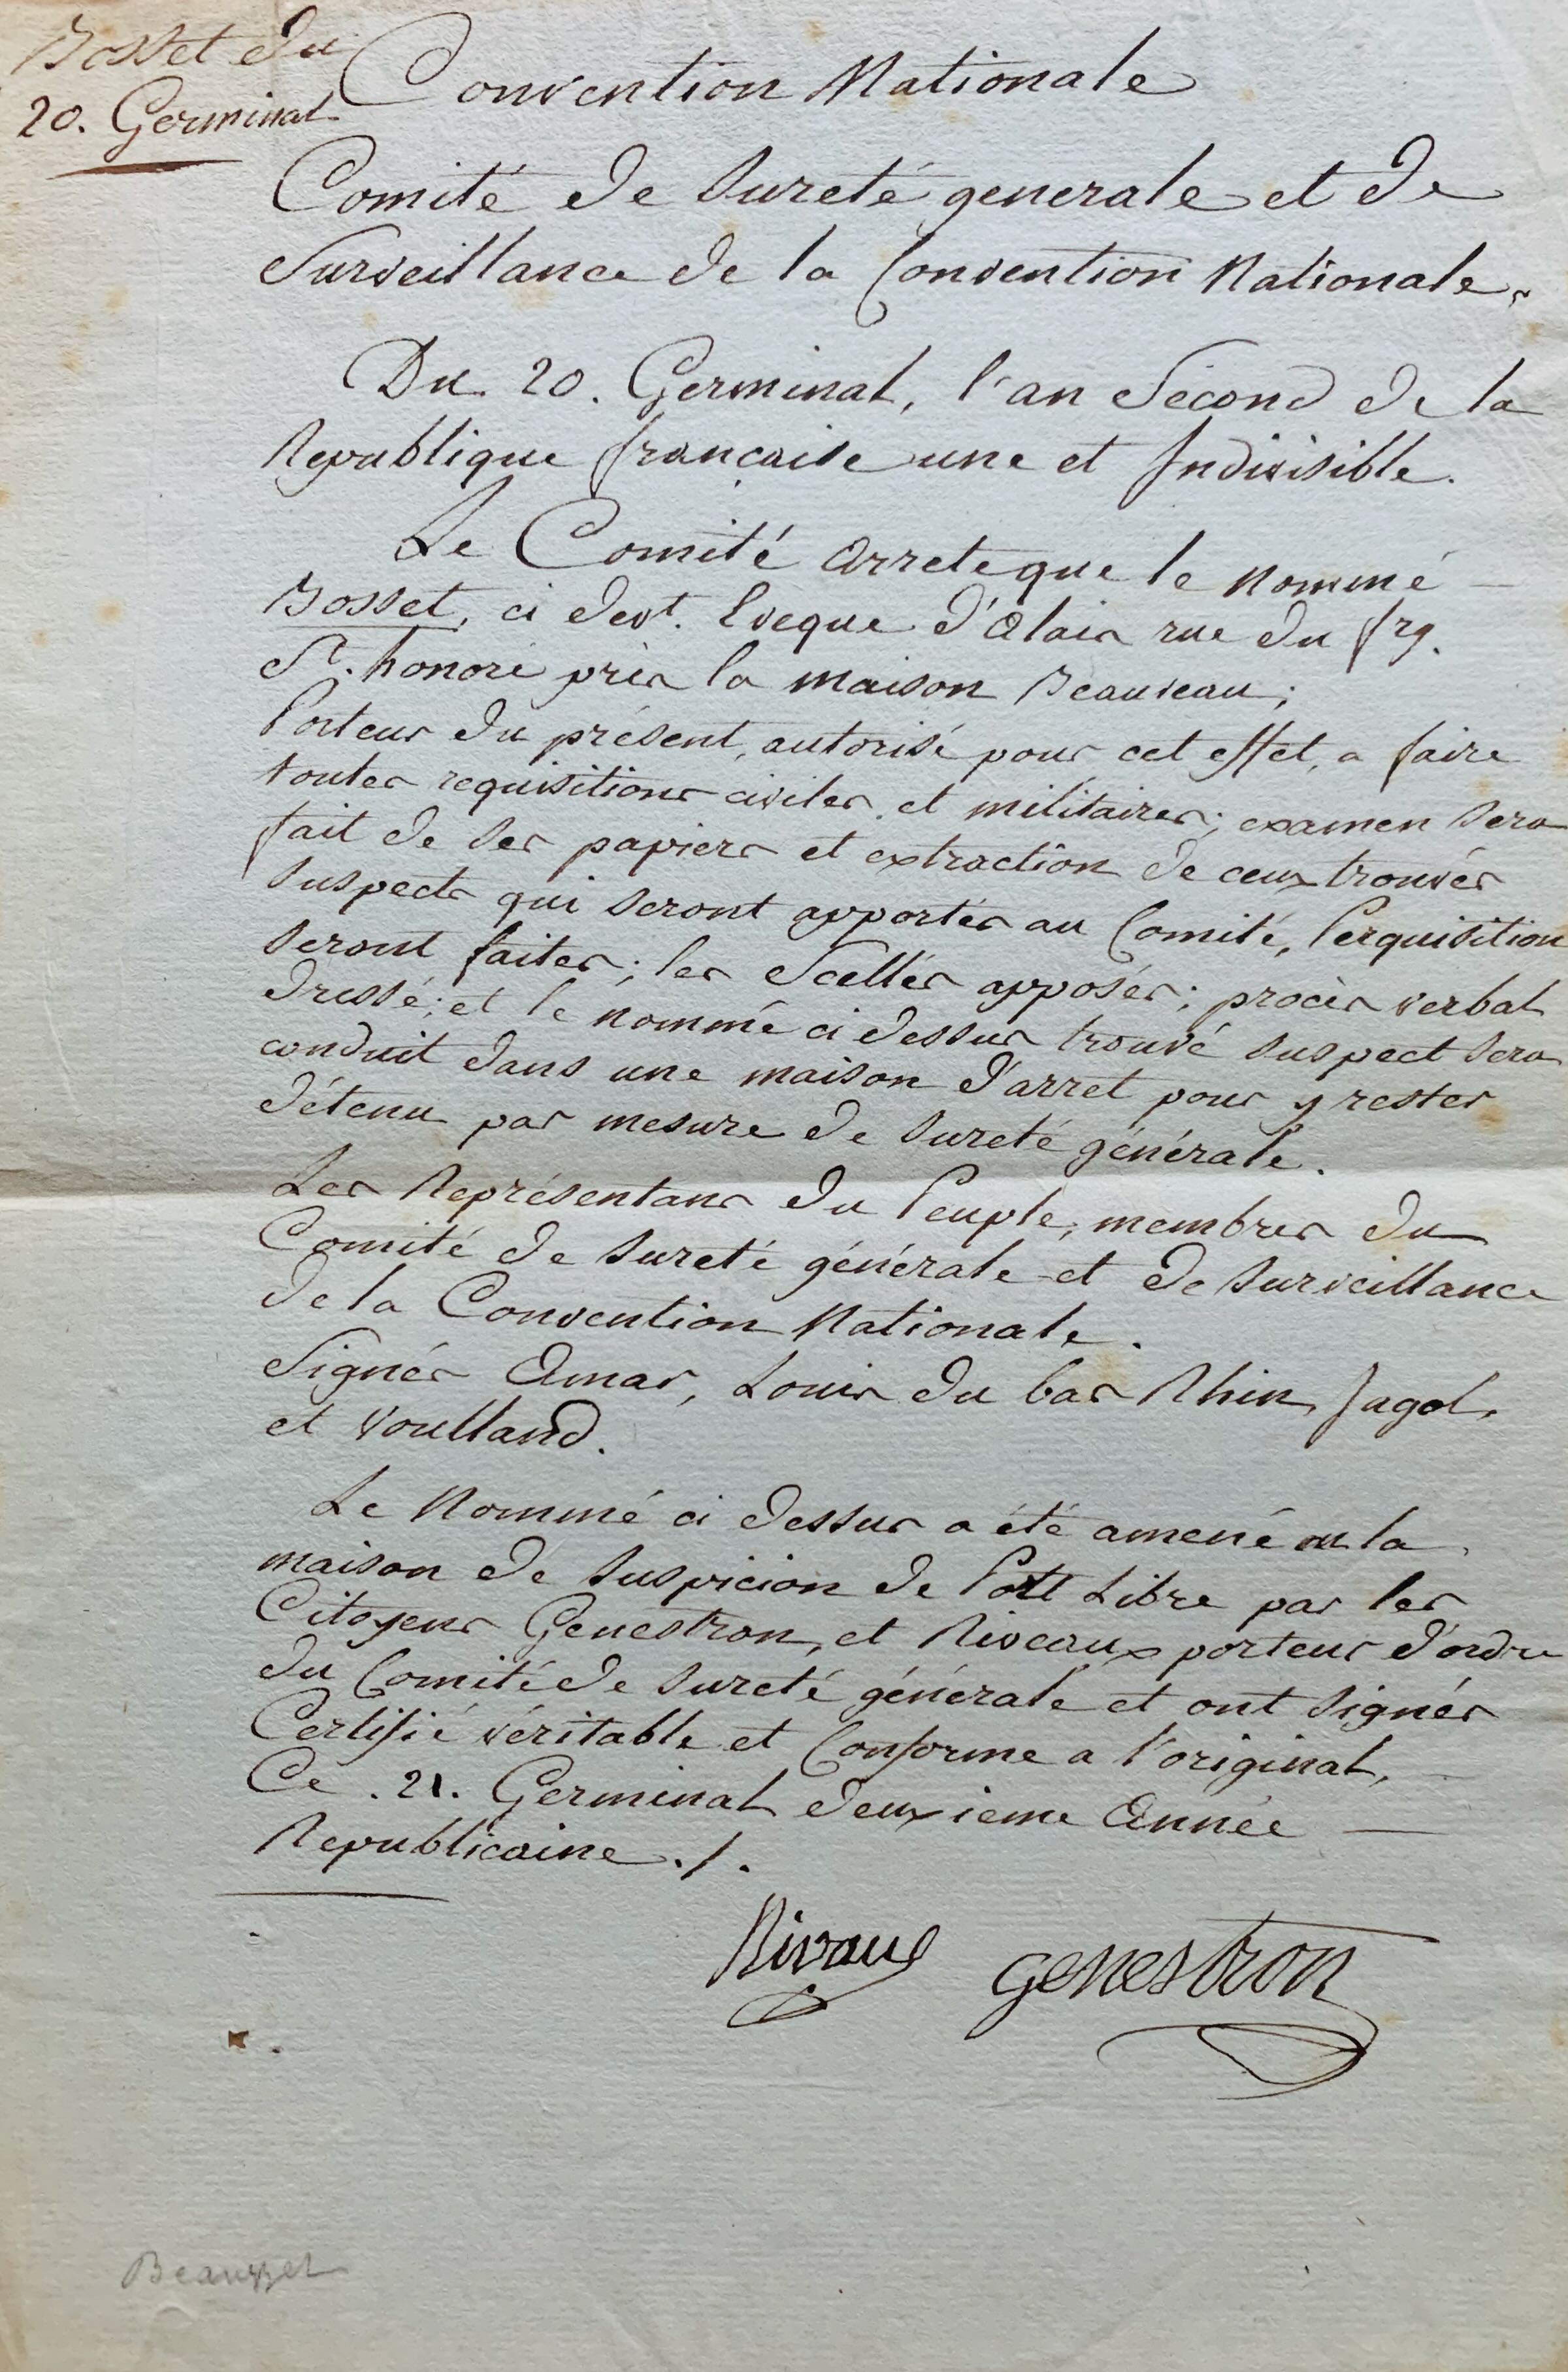 Bosset du
20. Germinal
Convention Nationale
Comité de Sureté generale et de
Surveillance de la Convention Nationale.
Du 20. Germinal, l'an Second de la
Republique française une et Indivisible.
Le Comité arrete que le nommé —
Bosset, ci devt. Eveque d'Alais rue du frg.
St. honoré près la maison Beauveau;
Porteur du présent, autorisé pour cet effet, a faire
toutes requisitions civiles et militaires; examen sera
fait de ses papiers et extraction de ceux trouvés
suspects qui seront apportés au Comité, Perquisition
seront faites; les Scellés apposés; procès verbal
dressé; et le nommé ci dessus trouvé suspect sera
conduit dans une maison d'arret pour y rester
détenu par mesure de sureté générale.
Les Représentans du Peuple, membres du
Comité de Sureté générale et de Surveillance
de la Convention Nationale.
Signés Amar, Louis du bas Rhin, Jagot,
et Voulland.
Le Nommé ci dessus a été amené en la
maison de suspicion de Port Libre par les
Citoyens Genestron, et Riveaux porteur d'ordre
du Comité de Sureté générale et ont signés
Certifié véritable et Conforme a l'original,
Ce . 21. Germinal deuxieme Année —
Republicaine ./.
Rivaux genestron
Beausset